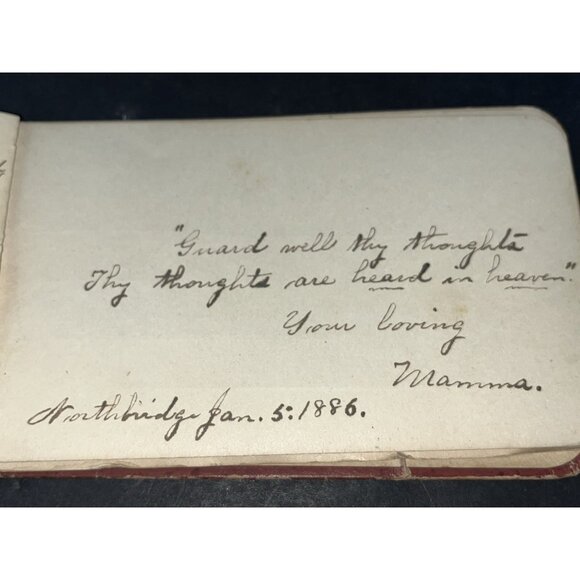 "Guard well thy thoughts
Thy thoughts are heard in heaven."
Your loving
Mamma.
Northbridge Jan. 5: 1886.